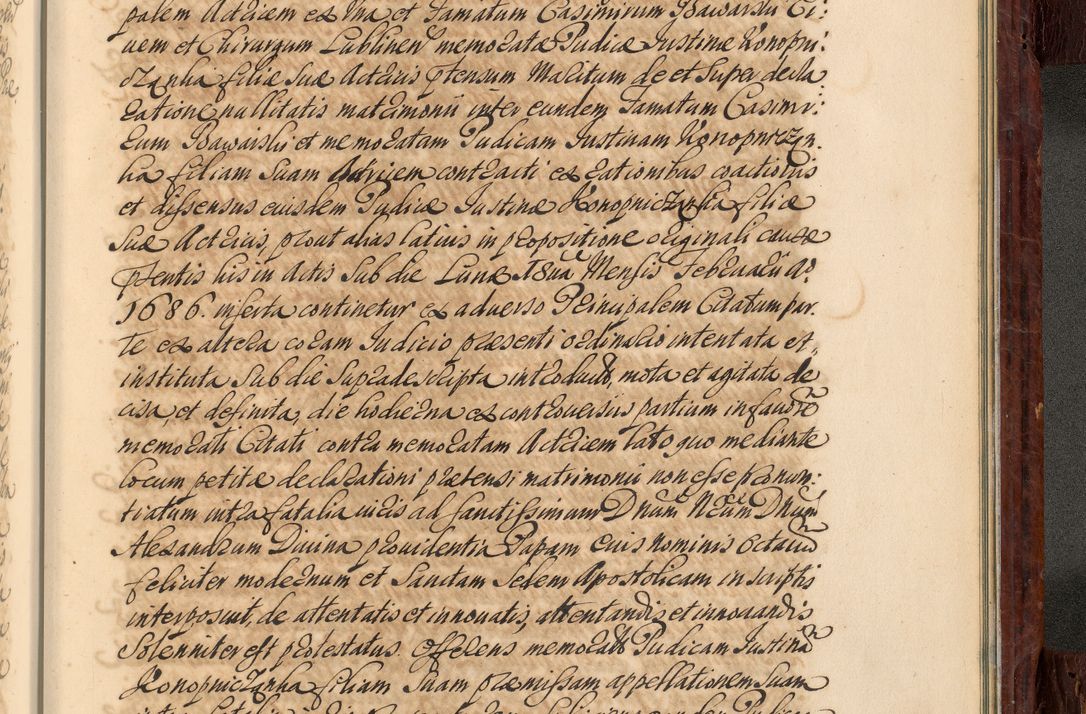 palem Actricem ex Una et Famatum Casimirum Bawarski Ci:
uem et Chirurgum Lublinen memoratæ Pudicæ Justinæ Konopni:
czanka filiæ suæ Actricis prætensum Maritum de et super decla
ratione nullitatis matrimonii inter eundem Famatum Casimi:
rum Bawarski et memoratam Pudicam Justinam Konopniczan
ka filiam suam contracti ex rationibus coactionis
et dissensus eiusdem Pudicæ Justinæ Konopniczanka filiæ
suæ Actricis, prout alias latius in propositione originali causæ
præsentis his in Actis sub die Lunæ 18ua Mensis Februarii A:
1686. inserta continetur ex adverso Principalem Citatum par.
te ex altera coram Judicio præsenti ordinario intentata et,
instituta sub die supradescripta introducto, mota et agitata de
cisa, et definita, die hodierna ex controversiis partium in favore
memorati Citati contra memoratam Actricem lato quo mediante
locum petitæ declarationi prætensi matrimonii non esse pronun:
tiatum intra fatalia iuris ad Sanctissimum Dnum Nrum Dnum
Alexandrum Divina providentia Papam eius nominis Octavum
feliciter modernum et Sanctam Sedem Apostolicam in scriptis
interposuit, de attentatis et innovatis, attentandis et innovandis
solenniter est protestatus. Offerens memorata Pudicam Justina
Konopniczanka filiam suam præmissam appellationem suam